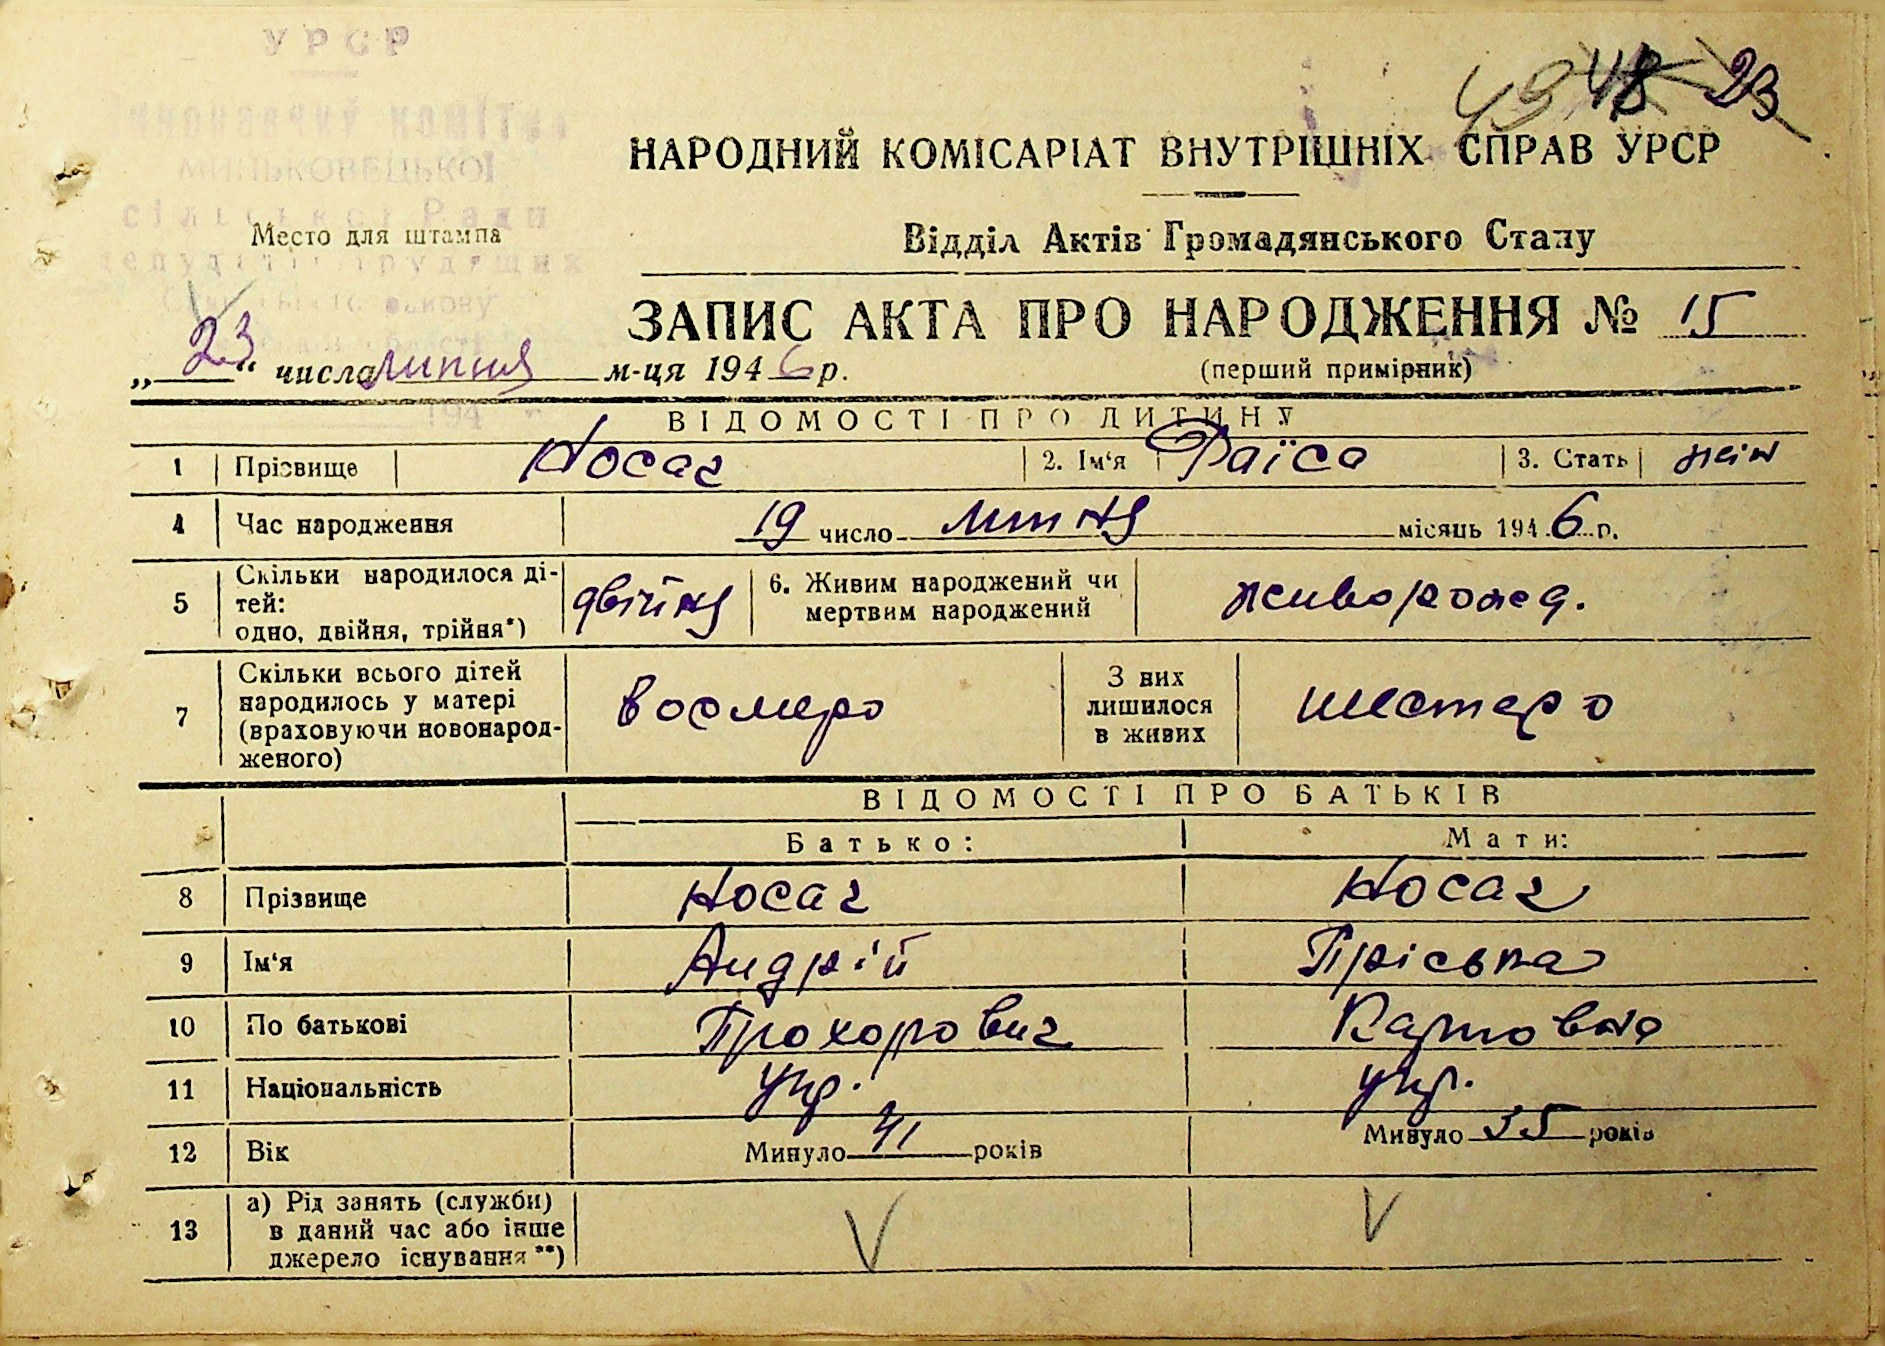 УРСР
49 48 23
Виконавчий комітет
НАРОДНИЙ КОМІСАРІАТ ВНУТРІШНІХ СПРАВ УРСР
МИНЬКОВЕЦЬКОЇ
сільської Ради
Место для штампа
Відділ Актів Громадянського Стану
депутатів трудящих
ЗАПИС АКТА ПРО НАРОДЖЕННЯ № 15
„23“ числа липня м-ця 1946 р.
(перший примірник)
194
ВІДОМОСТІ ПРО ДИТИНУ
1 Прізвище Носач 2. Ім‘я Раїса 3. Стать жін
4 Час народження 19 число липня місяць 1946 р.
5 Скільки народилося ді-
тей:
одно, двійня, трійня*) двійня 6. Живим народжений чи
мертвим народжений живорожд.
7 Скільки всього дітей
народилось у матері
(враховуючи новонарод-
женого) восмеро З них
лишилося
в живих шестеро
ВІДОМОСТІ ПРО БАТЬКІВ
Батько: Мати:
8 Прізвище Носач Носач
9 Ім‘я Андрій Пріська
10 По батькові Прохорович
11 Національність укр. укр.
12 Вік Минуло 41 років Минуло 35 років
13 а) Рід занять (служби)
в даний час або інше
джерело існування**)